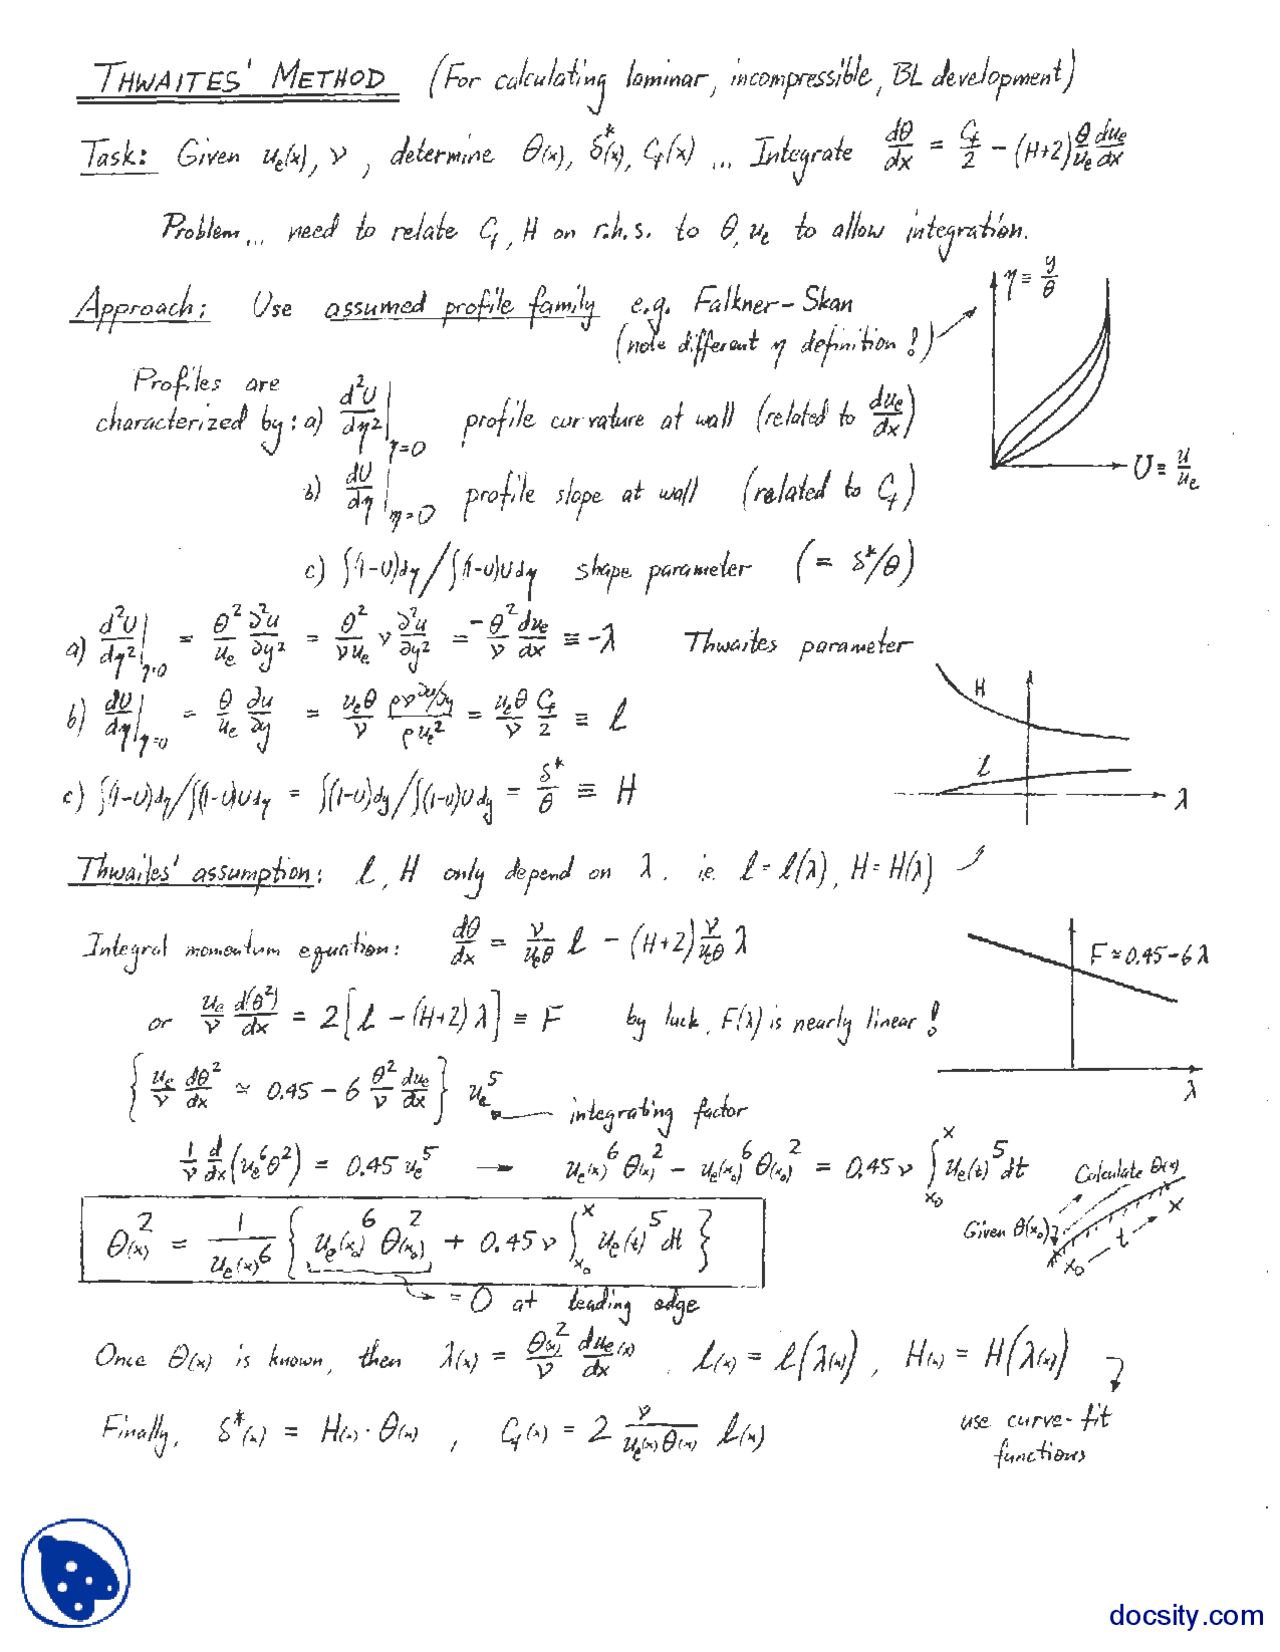 THWAITES' METHOD (For calculating laminar, incompressible, BL development)
Task: Given uₑ(x), ν, determine θ(x), δ*(x), C_f(x) ... Integrate dθ/dx = C_f/2 − (H+2) θ/uₑ duₑ/dx
Problem... need to relate C_f, H on r.h.s. to θ, uₑ to allow integration.
Approach: Use assumed profile family e.g. Falkner-Skan
(note different η definition!)
η ≡ y/θ
U ≡ u/uₑ
Profiles are
characterized by: a) d²U/dη²|η=0 profile curvature at wall (related to duₑ/dx)
b) dU/dη|η=0 profile slope at wall (related to C_f)
c) ∫(1-U)dη/∫(1-U)Udη shape parameter (= δ*/θ)
a) d²U/dη²|η=0 = θ²/uₑ ∂²u/∂y² = θ²/νuₑ ν ∂²u/∂y² = -θ²/ν duₑ/dx ≡ -λ Thwaites parameter
b) dU/dη|η=0 = θ/uₑ ∂u/∂y = uₑθ/ν ρν∂u/∂y/ρuₑ² = uₑθ/ν C_f/2 ≡ l
c) ∫(1-U)dη/∫(1-U)Udη = ∫(1-U)dy/∫(1-U)Udy = δ*/θ ≡ H
H
l
λ
Thwaites' assumption: l, H only depend on λ. ie l = l(λ), H = H(λ)
Integral momentum equation: dθ/dx = ν/uₑθ l − (H+2) ν/uₑθ λ
F ≃ 0.45 − 6λ
λ
or uₑ/ν d(θ²)/dx = 2[l − (H+2)λ] ≡ F by luck, F(λ) is nearly linear!
{uₑ/ν dθ²/dx ≃ 0.45 − 6 θ²/ν duₑ/dx} uₑ⁵
integrating factor
1/ν d/dx(uₑ⁶θ²) = 0.45 uₑ⁵ → uₑ(x)⁶ θ(x)² − uₑ(x₀)⁶ θ(x₀)² = 0.45 ν ∫ₓ₀ˣ uₑ(t)⁵ dt
Calculate θ(x)
Given θ(x₀)
x₀ t x
θ(x)² = 1/uₑ(x)⁶ {uₑ(x₀)⁶ θ(x₀)² + 0.45 ν ∫ₓ₀ˣ uₑ(t)⁵ dt}
= 0 at leading edge
Once θ(x) is known, then λ(x) = θ(x)²/ν duₑ(x)/dx, l(x) = l(λ(x)), H(x) = H(λ(x))
use curve-fit
functions
Finally, δ*(x) = H(x)·θ(x), C_f(x) = 2 ν/uₑ(x)θ(x) l(x)
docsity.com